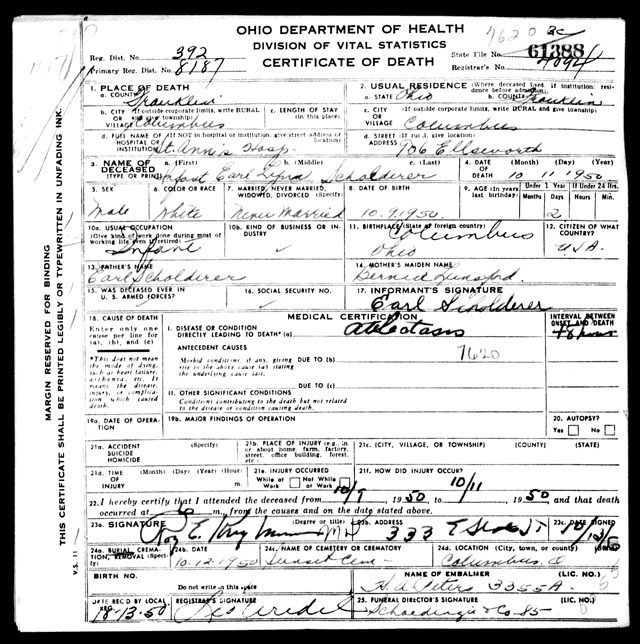 OHIO DEPARTMENT OF HEALTH
DIVISION OF VITAL STATISTICS
CERTIFICATE OF DEATH
7620
Reg. Dist. No. 392
Primary Reg. Dist. No. 8187
State File No. 61388
Registrar's No. 4094
MARGIN RESERVED FOR BINDING
THIS CERTIFICATE SHALL BE PRINTED LEGIBLY OR TYPEWRITTEN IN UNFADING INK.
V.S. 11
1. PLACE OF DEATH
a. COUNTY Franklin
2. USUAL RESIDENCE (Where deceased lived. If institution: residence before admission).
a. STATE Ohio b. COUNTY Franklin
b. CITY (If outside corporate limits, write RURAL OR and give township) VILLAGE Columbus
c. LENGTH OF STAY (in this place)
c. CITY (If outside corporate limits, write RURAL and give township) OR VILLAGE Columbus
d. FULL NAME OF (If NOT in hospital or institution, give street address or location) HOSPITAL OR INSTITUTION St. Ann's Hosp-
d. STREET (If rural, give location) ADDRESS 906 Ellsworth
3. NAME OF DECEASED (TYPE OR PRINT) a. (First) b. (Middle) c. (Last)
Infant Earl Scholderer
4. DATE OF DEATH (Month) (Day) (Year)
10 11 1950
5. SEX
Male
6. COLOR OR RACE
White
7. MARRIED, NEVER MARRIED, WIDOWED, DIVORCED (Specify)
Never Married
8. DATE OF BIRTH
10.9.1950
9. AGE (In years last birthday) Under 1 Year Months Days If Under 24 Hrs. Hours Min.
2
10a. USUAL OCCUPATION (Give kind of work done most of working life even if retired)
Infant
10b. KIND OF BUSINESS OR INDUSTRY
11. BIRTHPLACE (State or foreign country)
Columbus
Ohio
12. CITIZEN OF WHAT COUNTRY?
USA.
13. FATHER'S NAME
Earl Scholderer
14. MOTHER'S MAIDEN NAME
15. WAS DECEASED EVER IN U. S. ARMED FORCES?
16. SOCIAL SECURITY NO.
17. INFORMANT'S SIGNATURE
Earl Scholderer
18. CAUSE OF DEATH
Enter only one cause per line for (a), (b), and (c)
*This does not mean the mode of dying, such as heart failure, asthenia, etc. It means the disease, injury, or complication which caused death.
MEDICAL CERTIFICATION
I. DISEASE OR CONDITION DIRECTLY LEADING TO DEATH* (a)
INTERVAL BETWEEN ONSET AND DEATH
48 hours
ANTECEDENT CAUSES
7620
Morbid conditions, if any, giving rise to the above cause (a) stating the underlying cause last.
DUE TO (b)
DUE TO (c)
II. OTHER SIGNIFICANT CONDITIONS
Conditions contributing to the death but not related to the disease or condition causing death.
19a. DATE OF OPERATION
19b. MAJOR FINDINGS OF OPERATION
20. AUTOPSY?
Yes No
21a. ACCIDENT SUICIDE HOMICIDE (Specify)
21b. PLACE OF INJURY (e.g., in or about home, farm, factory, street, office building, forest, etc.)
21c. (CITY, VILLAGE, OR TOWNSHIP) (COUNTY) (STATE)
21d. TIME OF INJURY (Month) (Day) (Year) (Hour) m.
21e. INJURY OCCURRED
While at Work Not While at Work
21f. HOW DID INJURY OCCUR?
22. I hereby certify that I attended the deceased from 10/9 1950 10/11 1950 and that death
occurred at 6 m., from the causes and on the date stated above.
23a. SIGNATURE (Degree or title)
Roy E. M.D.
23b. ADDRESS
333 E State St
23c. SIGNED
24a. BURIAL, CREMATION, REMOVAL (Specify)
24b. DATE
10-12-1950
24c. NAME OF CEMETERY OR CREMATORY
Sunset Cem-
24d. LOCATION (City, town, or county) (State)
Columbus, O
BIRTH NO.
Do not write in this space
NAME OF EMBALMER (LIC. NO.)
H.A. Peters 3355A.
DATE REC'D BY LOCAL REG.
10-13-50
REGISTRAR'S SIGNATURE
25. FUNERAL DIRECTOR'S SIGNATURE (LIC. NO.)
Schoedinger & Co 85-